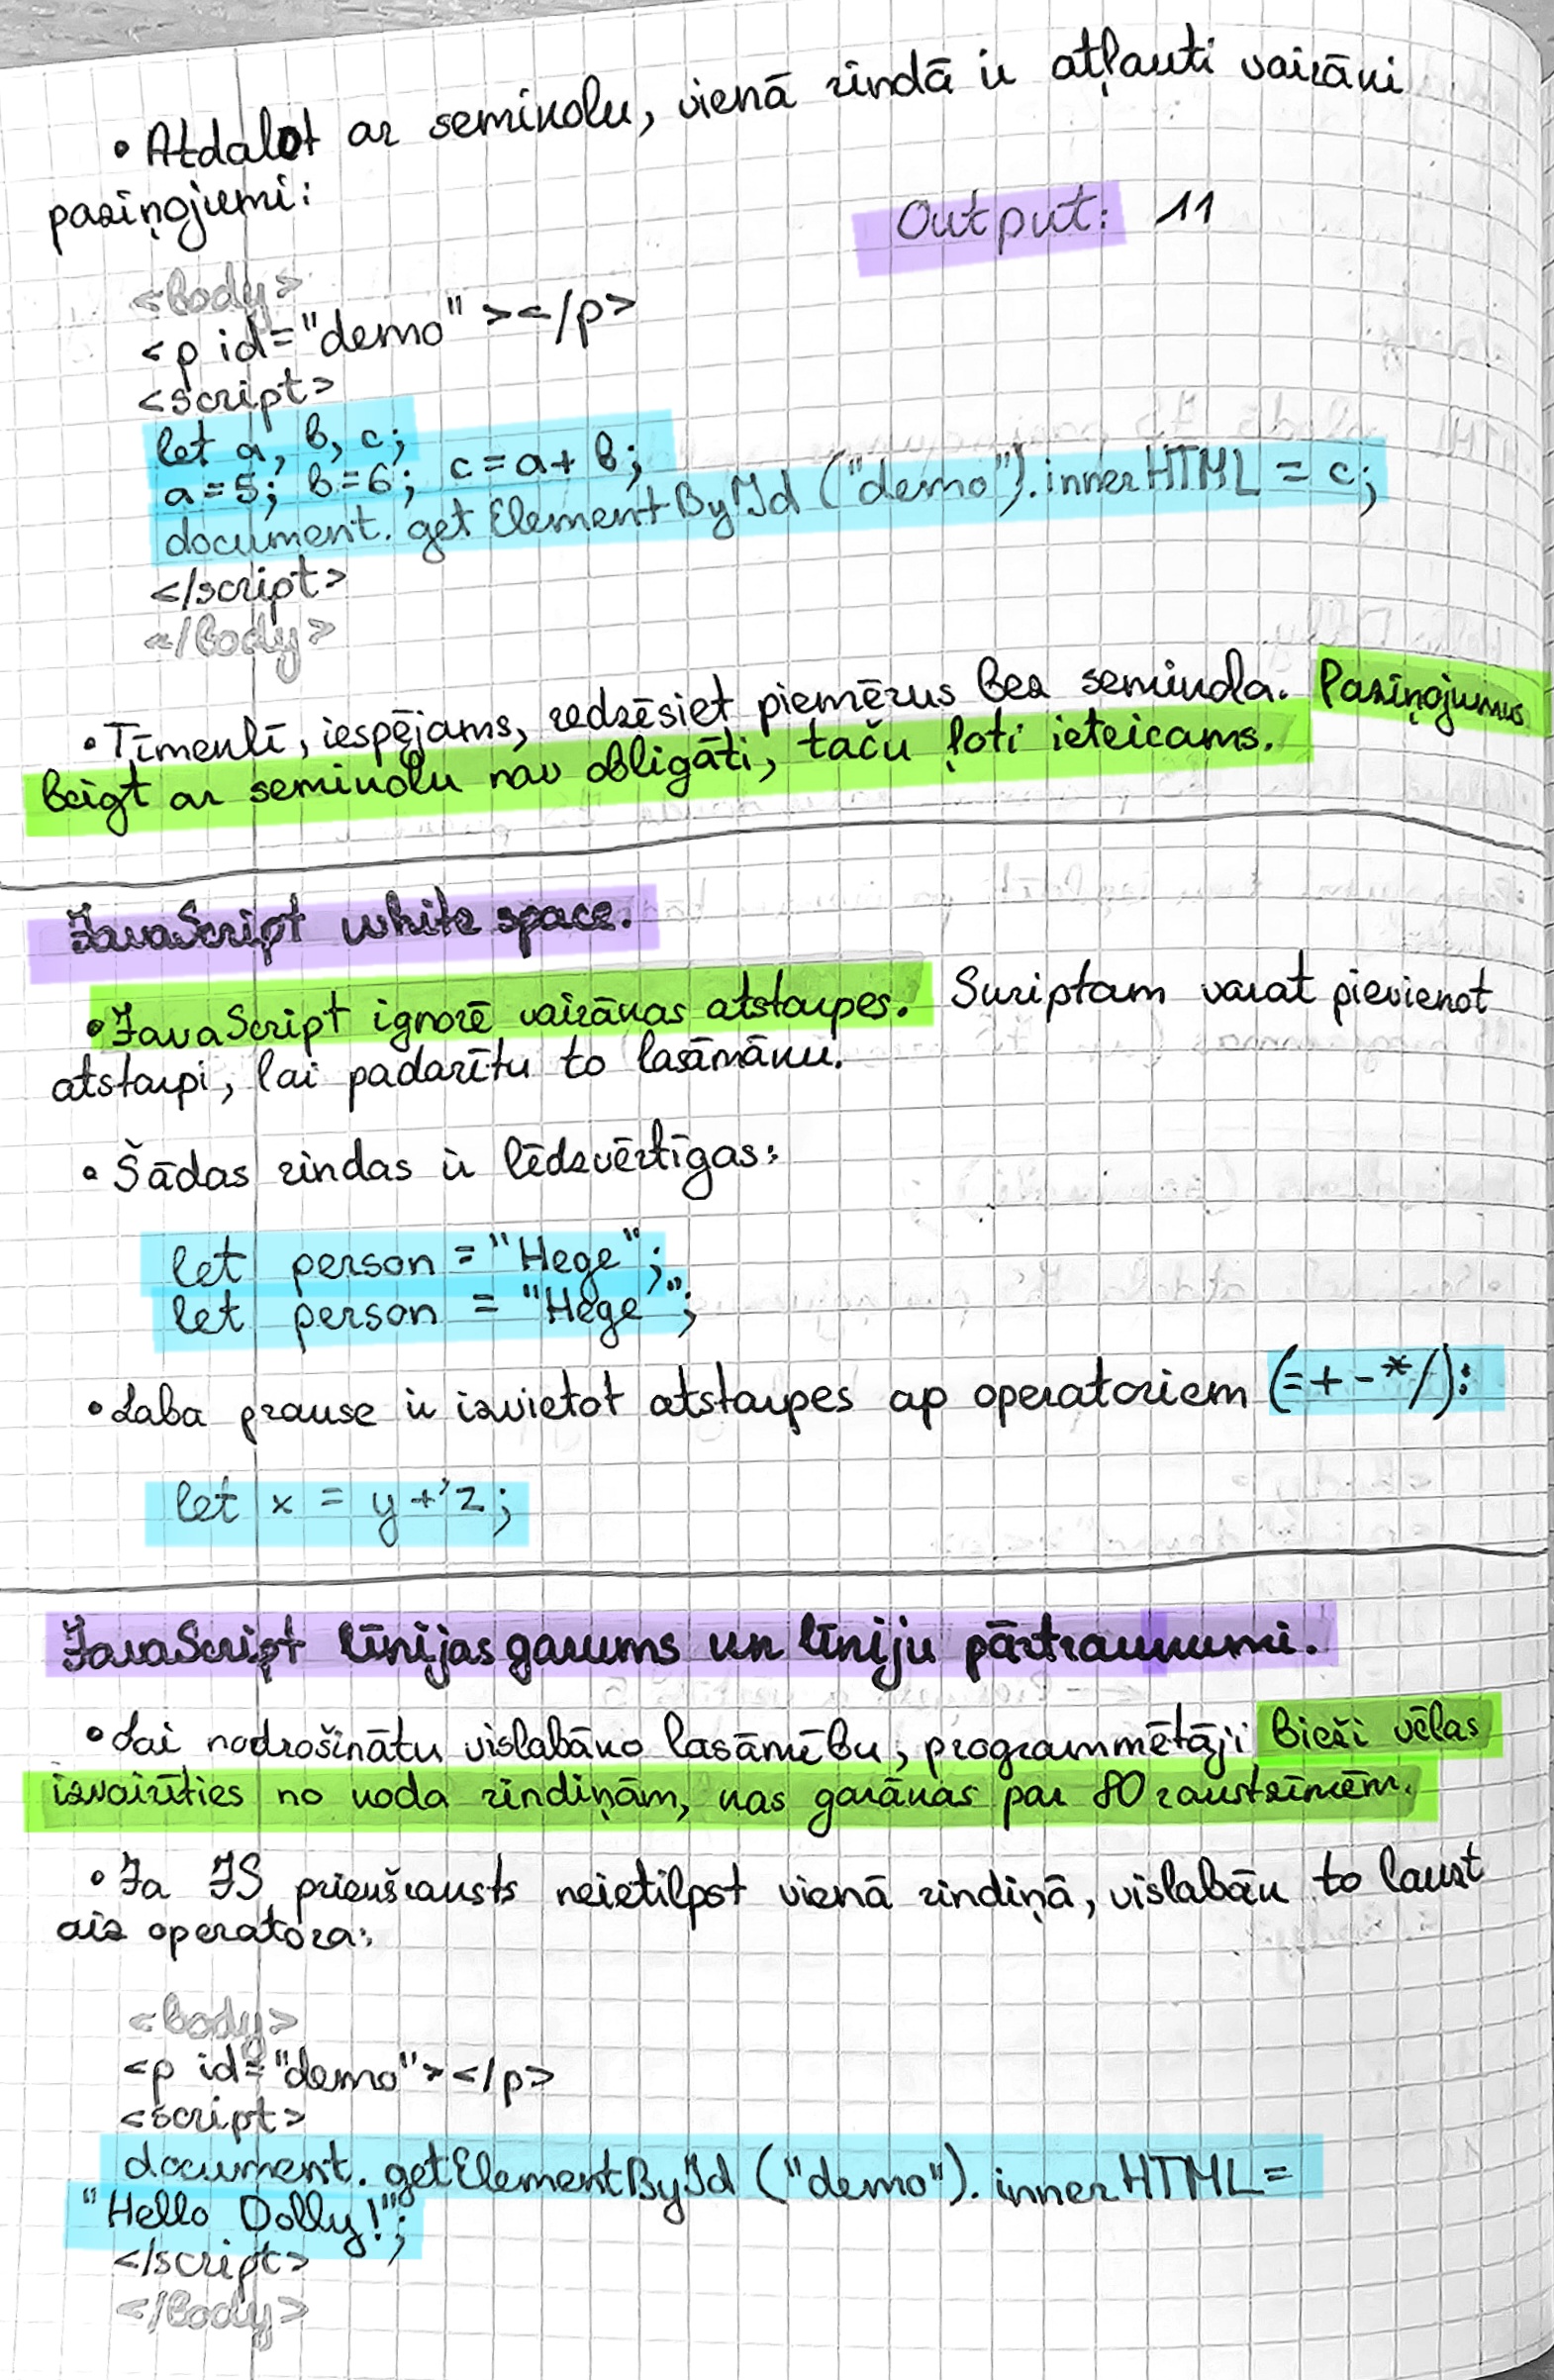 • Atdalot ar semikolu, vienā rindā ir atļauti vairāki
paziņojumi:
Output: 11
<body>
<p id="demo"></p>
<script>
let a, b, c;
a=5; b=6; c=a+b;
document.getElementById("demo").innerHTML = c;
</script>
</body>
• Tīmeklī, iespējams, redzēsiet piemērus bez semikola. Paziņojumus
beigt ar semikolu nav obligāti, taču ļoti ieteicams.
JavaScript white space.
• JavaScript ignorē vairākas atstarpes. Skriptam varat pievienot
atstarpi, lai padarītu to lasāmāku.
• Šādas rindas ir līdzvērtīgas:
let person ="Hege";
let person = "Hege";
• Laba prakse ir izvietot atstarpes ap operatoriem (=+-*/):
let x = y+z;
JavaScript līnijas garums un līniju pārtraukumi.
• Lai nodrošinātu vislabāko lasāmību, programmētāji bieži vēlas
izvairīties no koda rindiņām, kas garākas par 80 rakstzīmēm.
• Ja JS priekšraksts neietilpst vienā rindiņā, vislabāk to lauzt
aiz operatora:
<body>
<p id="demo"></p>
<script>
document.getElementById("demo").innerHTML=
"Hello Dolly!";
</script>
</body>